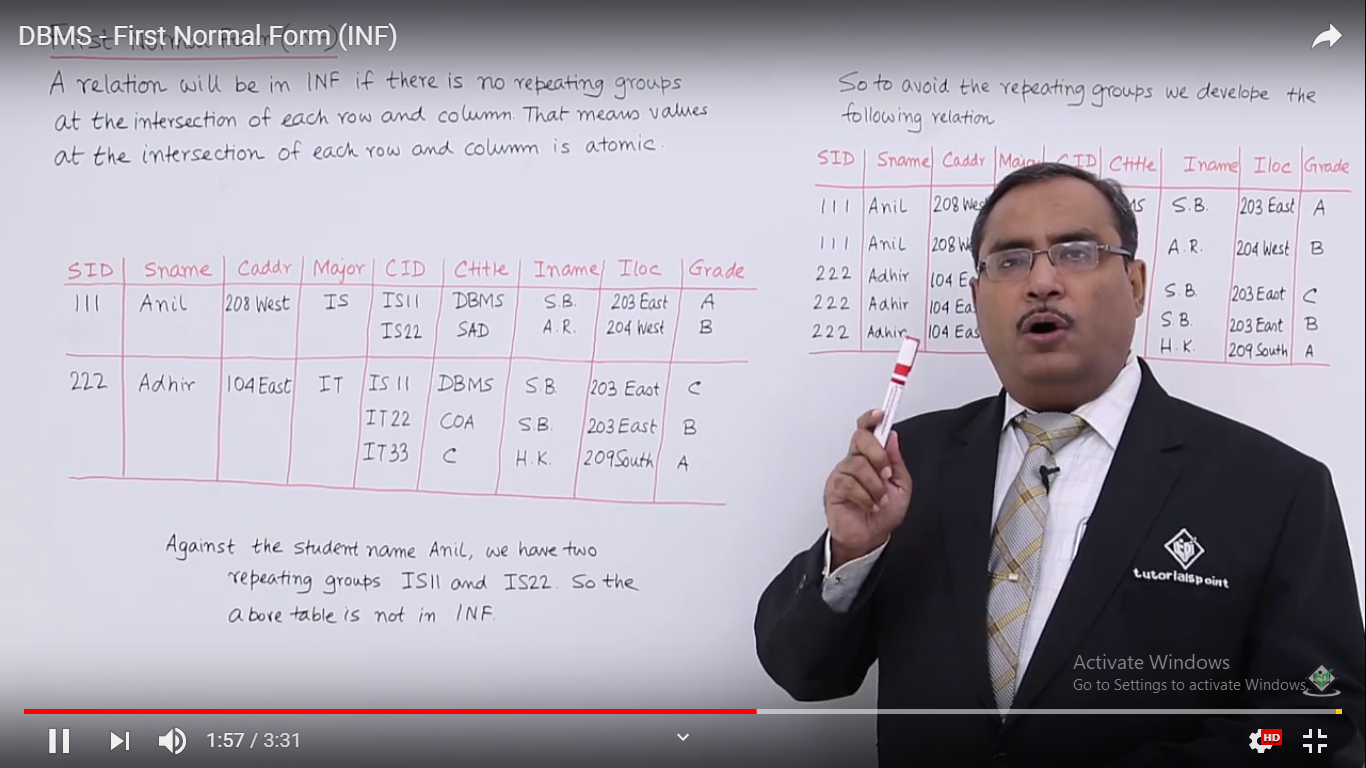 DBMS - First Normal Form (INF)
A relation will be in INF if there is no repeating groups
at the intersection of each row and column. That means values
at the intersection of each row and column is atomic.
SID Sname Caddr Major CID Ctitle Iname Iloc Grade
111 Anil 208 West IS IS11 DBMS S.B. 203 East A
IS22 SAD A.R. 204 West B
222 Adhir 104 East IT IS 11 DBMS S.B. 203 East C
IT22 COA S.B. 203 East B
IT33 C H.K. 209 South A
Against the student name Anil, we have two
repeating groups IS11 and IS22. So the
above table is not in INF.
So to avoid the repeating groups we develope the
following relation
SID Sname Caddr Major CID Ctitle Iname Iloc Grade
111 Anil 208 S.B. 203 East A
111 Anil 208 A.R. 204 West B
222 Adhir 104 S.B. 203 East C
222 Adhir 104 S.B. 203 East B
222 Adhir 104 H.K. 209 South A
tutorialspoint
Activate Windows
Go to Settings to activate Windows.
1:57 / 3:31
HD